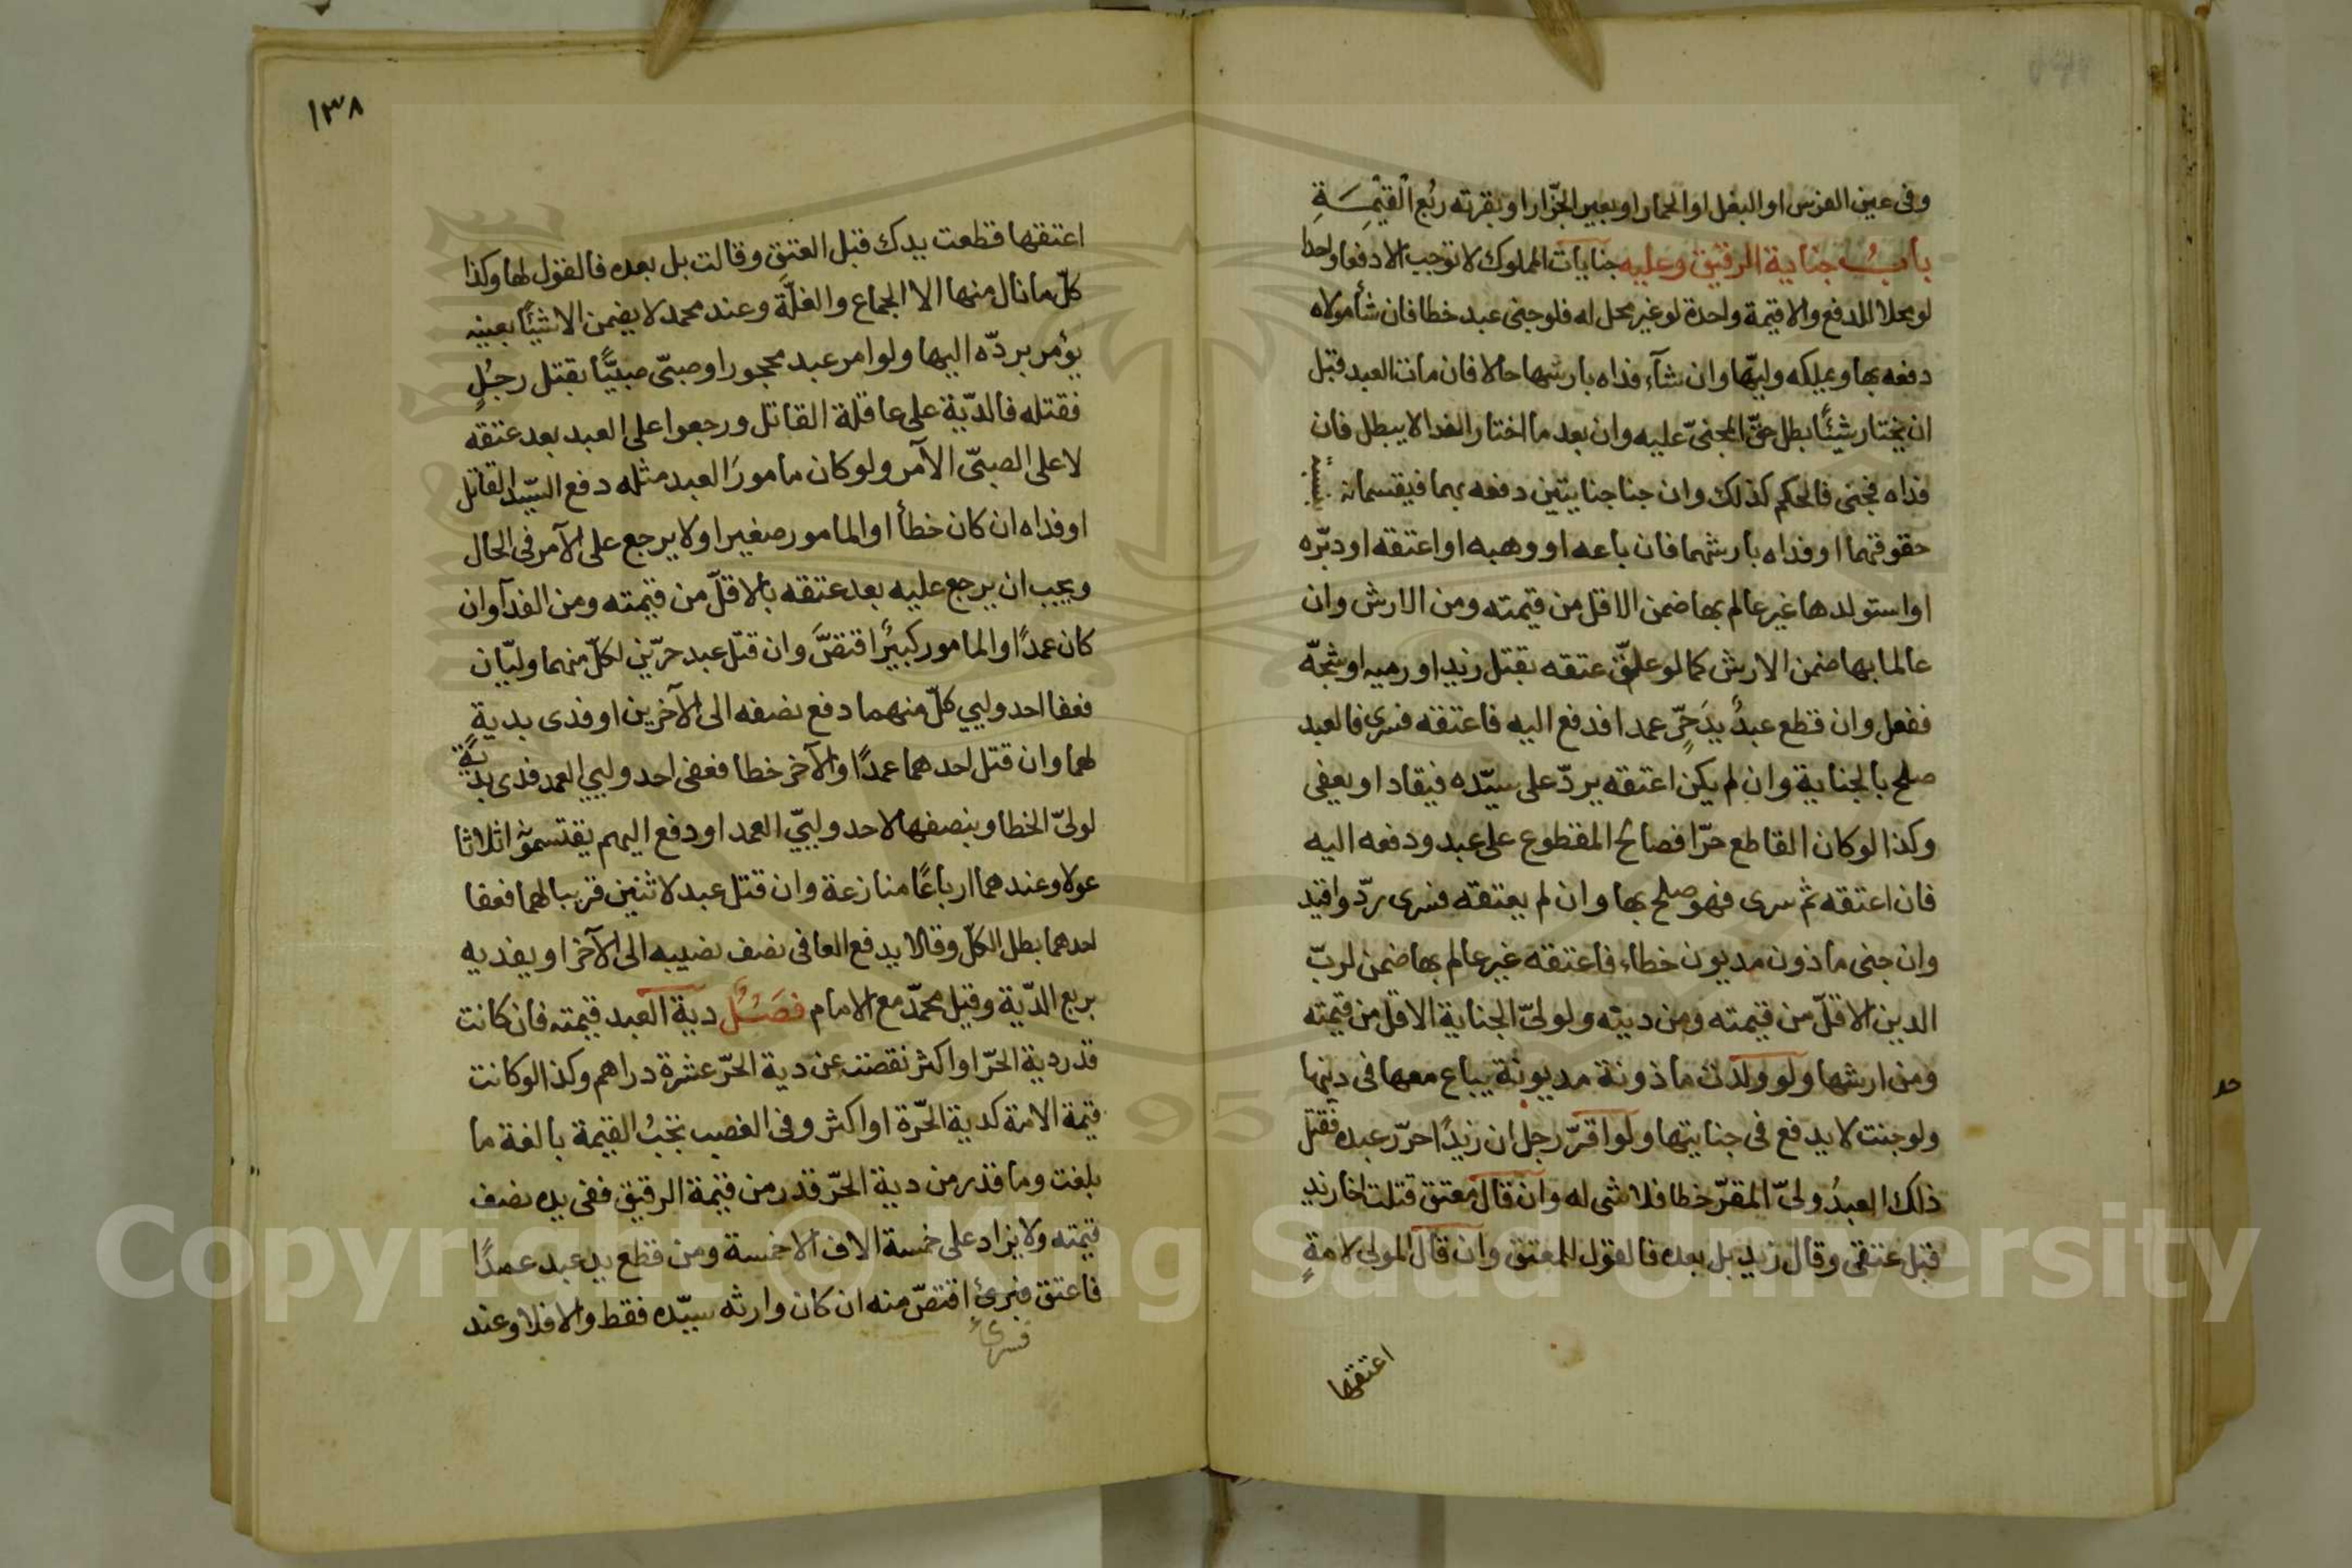 وفى عين الفرس او البغل او الحمار او بعير الجزّار او بقرته ربُع القيْمَةِ
بابُ جناية الرقيق وعليه جنايات المملوك لا توجب الا دفعا واحدا
لو محلا للدفع والا قيمة واحدة لو غير محل له فلو جنى عبد خطا فان شأ مولاه
دفعه بها ويملكه وليّها وان شآء فداه بارشها حالا فان مات العبد قبل
ان يختار شيئًا بطل حقّ المجنىّ عليه وان بعد ما اختار الفدا لا يبطل فان
فداه فجنى فالحكم كذلك وان جنا جنايتين دفعه بهما فيقتسمانه بنسبة
حقوقهما او فداه بارشهما فان باعه او وهبه او اعتقه او دبّره
او استولدها غير عالم بها ضمن الاقل من قيمته ومن الارش وان
عالما بها ضمن الارش كما لو علّق عتقه بقتل زيد او رميه او شجّه
ففعل وان قطع عبدٌ يدَ حرٍّ عمدا فدفع اليه فاعتقه فسرى فالعبد
صلح بالجناية وان لم يكن اعتقه يردّ على سيّده فيقاد او يعفى
وكذا لو كان القاطع حرّا فصالح المقطوع على عبد ودفعه اليه
فان اعتقه ثم سرى فهو صلح بها وان لم يعتقه فسرى ردّ واقيد
وان جنى ماذون مديون خطاء فاعتقه غير عالم بها ضمن لربّ
الدين الاقلّ من قيمته ومن دينه ولولىّ الجناية الاقل من قيمته
ومن ارشها ولو ولدت ماذونة مديونة يباع معها فى دينها
ولو جنت لا يدفع فى جنايتها ولو اقرّ رجل ان زيدًا حرّر عبده فقتل
ذلك العبدُ ولىّ المقرّ خطا فلا شى له وان قال معتق قتلت اخا زيد
قبل عتقى وقال زيد بل بعده فالقول للمعتق وان قال المولى لامةٍ
اعتقها
١٣٨
اعتقها قطعت يدك قبل العتق وقالت بل بعده فالقول لها وكذا
كلّ ما نال منها الا الجماع والغلّة وعند محمد لا يضمن الا شيئًا بعينه
يؤمر بردّه اليها ولو امر عبد محجور او صبىّ صبيًّا بقتل رجُلٍ
فقتله فالدّية على عاقلة القاتل ورجعوا على العبد بعد عتقه
لا على الصبىّ الآمر ولو كان مامورَ العبد مثله دفع السّيد القاتل
او فداه ان كان خطأ او المامور صغيرا ولا يرجع على الآمر فى الحال
ويجب ان يرجع عليه بعد عتقه بالاقلّ من قيمته ومن الفدآ وان
كان عمدًا والمامور كبيرًا اقتصّ وان قتل عبد حرّين لكلّ منهما وليّان
فعفا احد وليي كلّ منهما دفع نصفه الى الآخرين او فدى بديةٍ
لهما وان قتل احدهما عمدًا والآخر خطا فعفى احد وليي العمد فدى بديةٍ
لولىّ الخطا وبنصفها لاحد وليىّ العمد او دفع اليهم يقتسمونه اثلاثا
عولا وعندهما ارباعًا منازعة وان قتل عبد لاثنين قريبا لهما فعفا
احدهما بطل الكلّ وقالا يدفع العافى نصف نصيبه الى الآخر او يفديه
بربع الدّية وقيل محمّد مع الامام فصَلٌ دية العبد قيمته فان كانت
قدر دية الحرّ او اكثر نقصت عن دية الحرّ عشرة دراهم وكذا لو كانت
قيمة الامة كدية الحّرة او اكثر وفى الغصب تجبُ القيمة بالغة ما
بلغت وما قدر من دية الحّر قدر من قيمة الرقيق ففى يده نصف
قيمته ولا يزاد على خمسة الاف الا خمسة ومن قطع يد عبد عمدًا
فاعتق فبرئ اقتصّ منه ان كان وارثه سيّده فقط والا فلا وعند
فسرى
Copyright © King Saud University